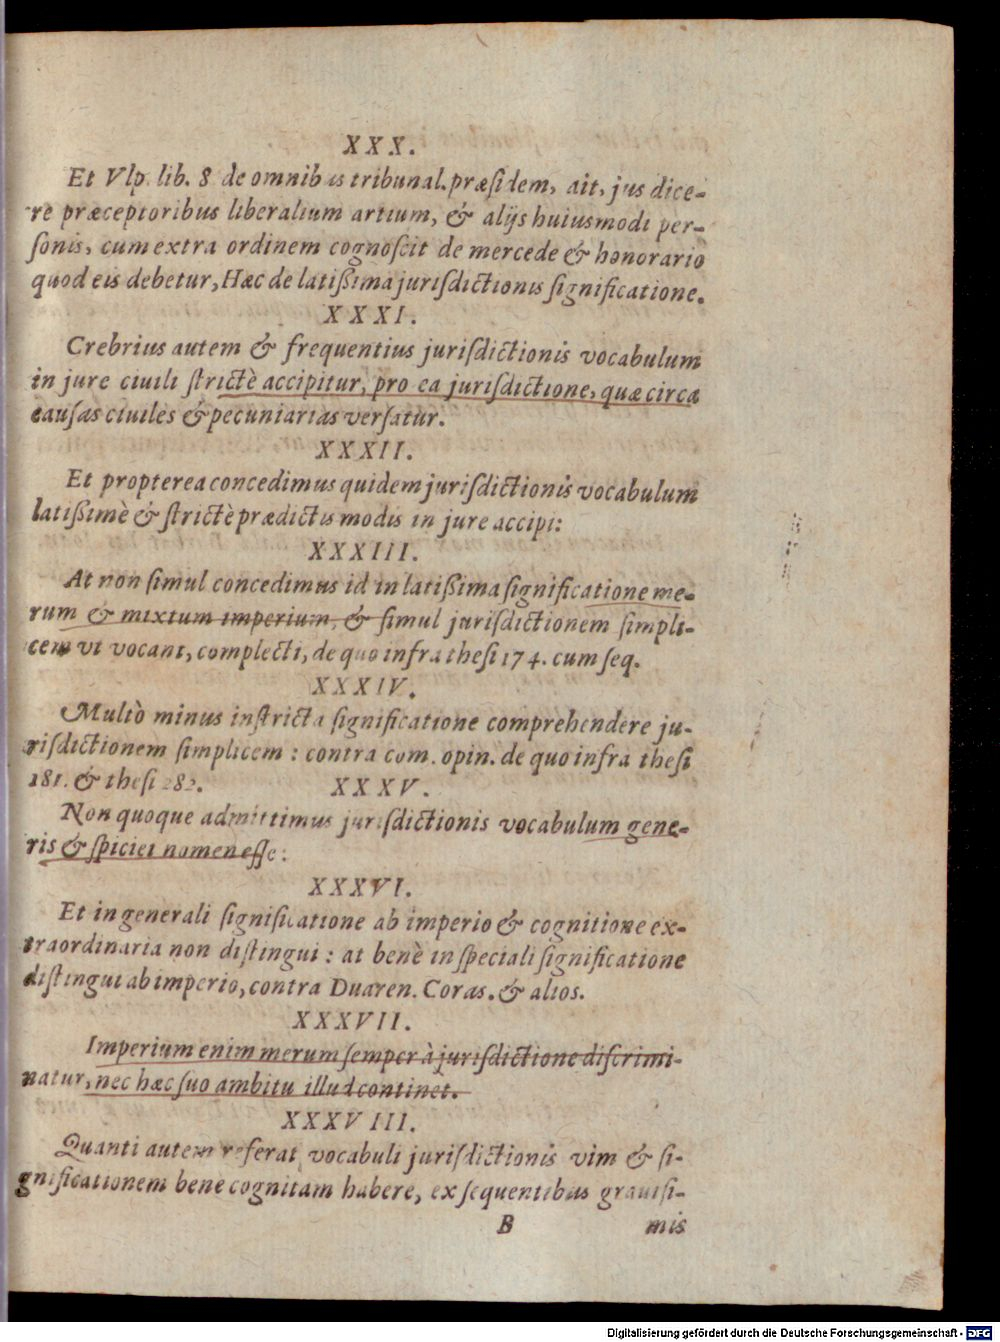 XXX.
Et Vlp. lib. 8 de omnibus tribunal. præsidem, ait, jus dice-
re præceptoribus liberalium artium, & alijs huiusmodi per-
sonis, cum extra ordinem cognoscit de mercede & honorario
quod eis debetur, Hæc de latißima jurisdictionis significatione.
XXXI.
Crebrius autem & frequentius jurisdictionis vocabulum
in jure ciuili strictè accipitur, pro ea jurisdictione, quæ circa
causas ciuiles & pecuniarias versatur.
XXXII.
Et propterea concedimus quidem jurisdictionis vocabulum
latißimè & strictè prædictis modis in jure accipi:
XXXIII.
At non simul concedimus id in latißima significatione me-
rum & mixtum imperium, & simul jurisdictionem simpli-
cem vt vocant, complecti, de quo infra thesi 174. cum seq.
XXXIV.
Multò minus in stricta significatione comprehendere ju-
risdictionem simplicem : contra com. opin. de quo infra thesi
181. & thesi 282.
XXXV.
Non quoque admittimus jurisdictionis vocabulum gene-
ris & spiciei nomen esse :
XXXVI.
Et in generali significatione ab imperio & cognitione ex-
traordinaria non distingui : at benè in speciali significatione
distingui ab imperio, contra Duaren. Coras. & alios.
XXXVII.
Imperium enim merum semper à jurisdictione discrimi-
natur, nec hæc suo ambitu illud continet.
XXXVIII.
Quanti autem referat vocabuli jurisdictionis vim & si-
gnificationem bene cognitam habere, ex sequentibus grauisi-
B mis
Digitalisierung gefördert durch die Deutsche Forschungsgemeinschaft - DFG